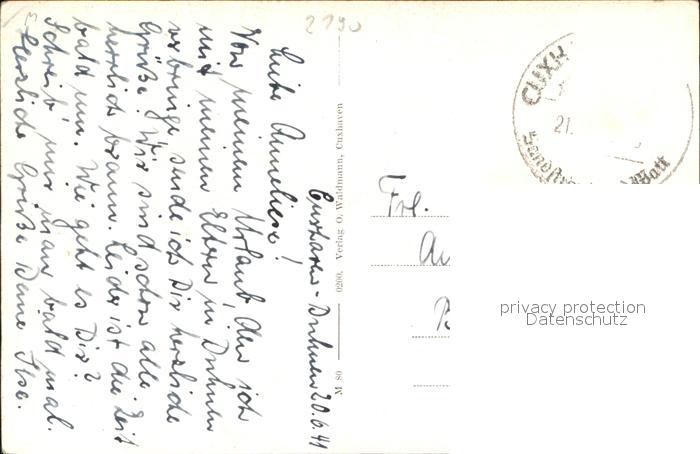 2190
Cuxhaven-Duhnen 20.6.41
Liebe Anneliese!
Von meinem Urlaub, den ich
mit meinen Eltern in Duhnen
verbringe sende ich Dir herzliche
Grüße. Wir sind schon alle
herrlich braun. Leider ist die Zeit
bald um. Wie geht es Dir?
Schreib' mir man bald mal.
Herzliche Grüße Deine Ilse.
M 80 0200, Verlag O. Waldmann, Cuxhaven
CUXH
21.
Watt
Frl.
privacy protection
Datenschutz